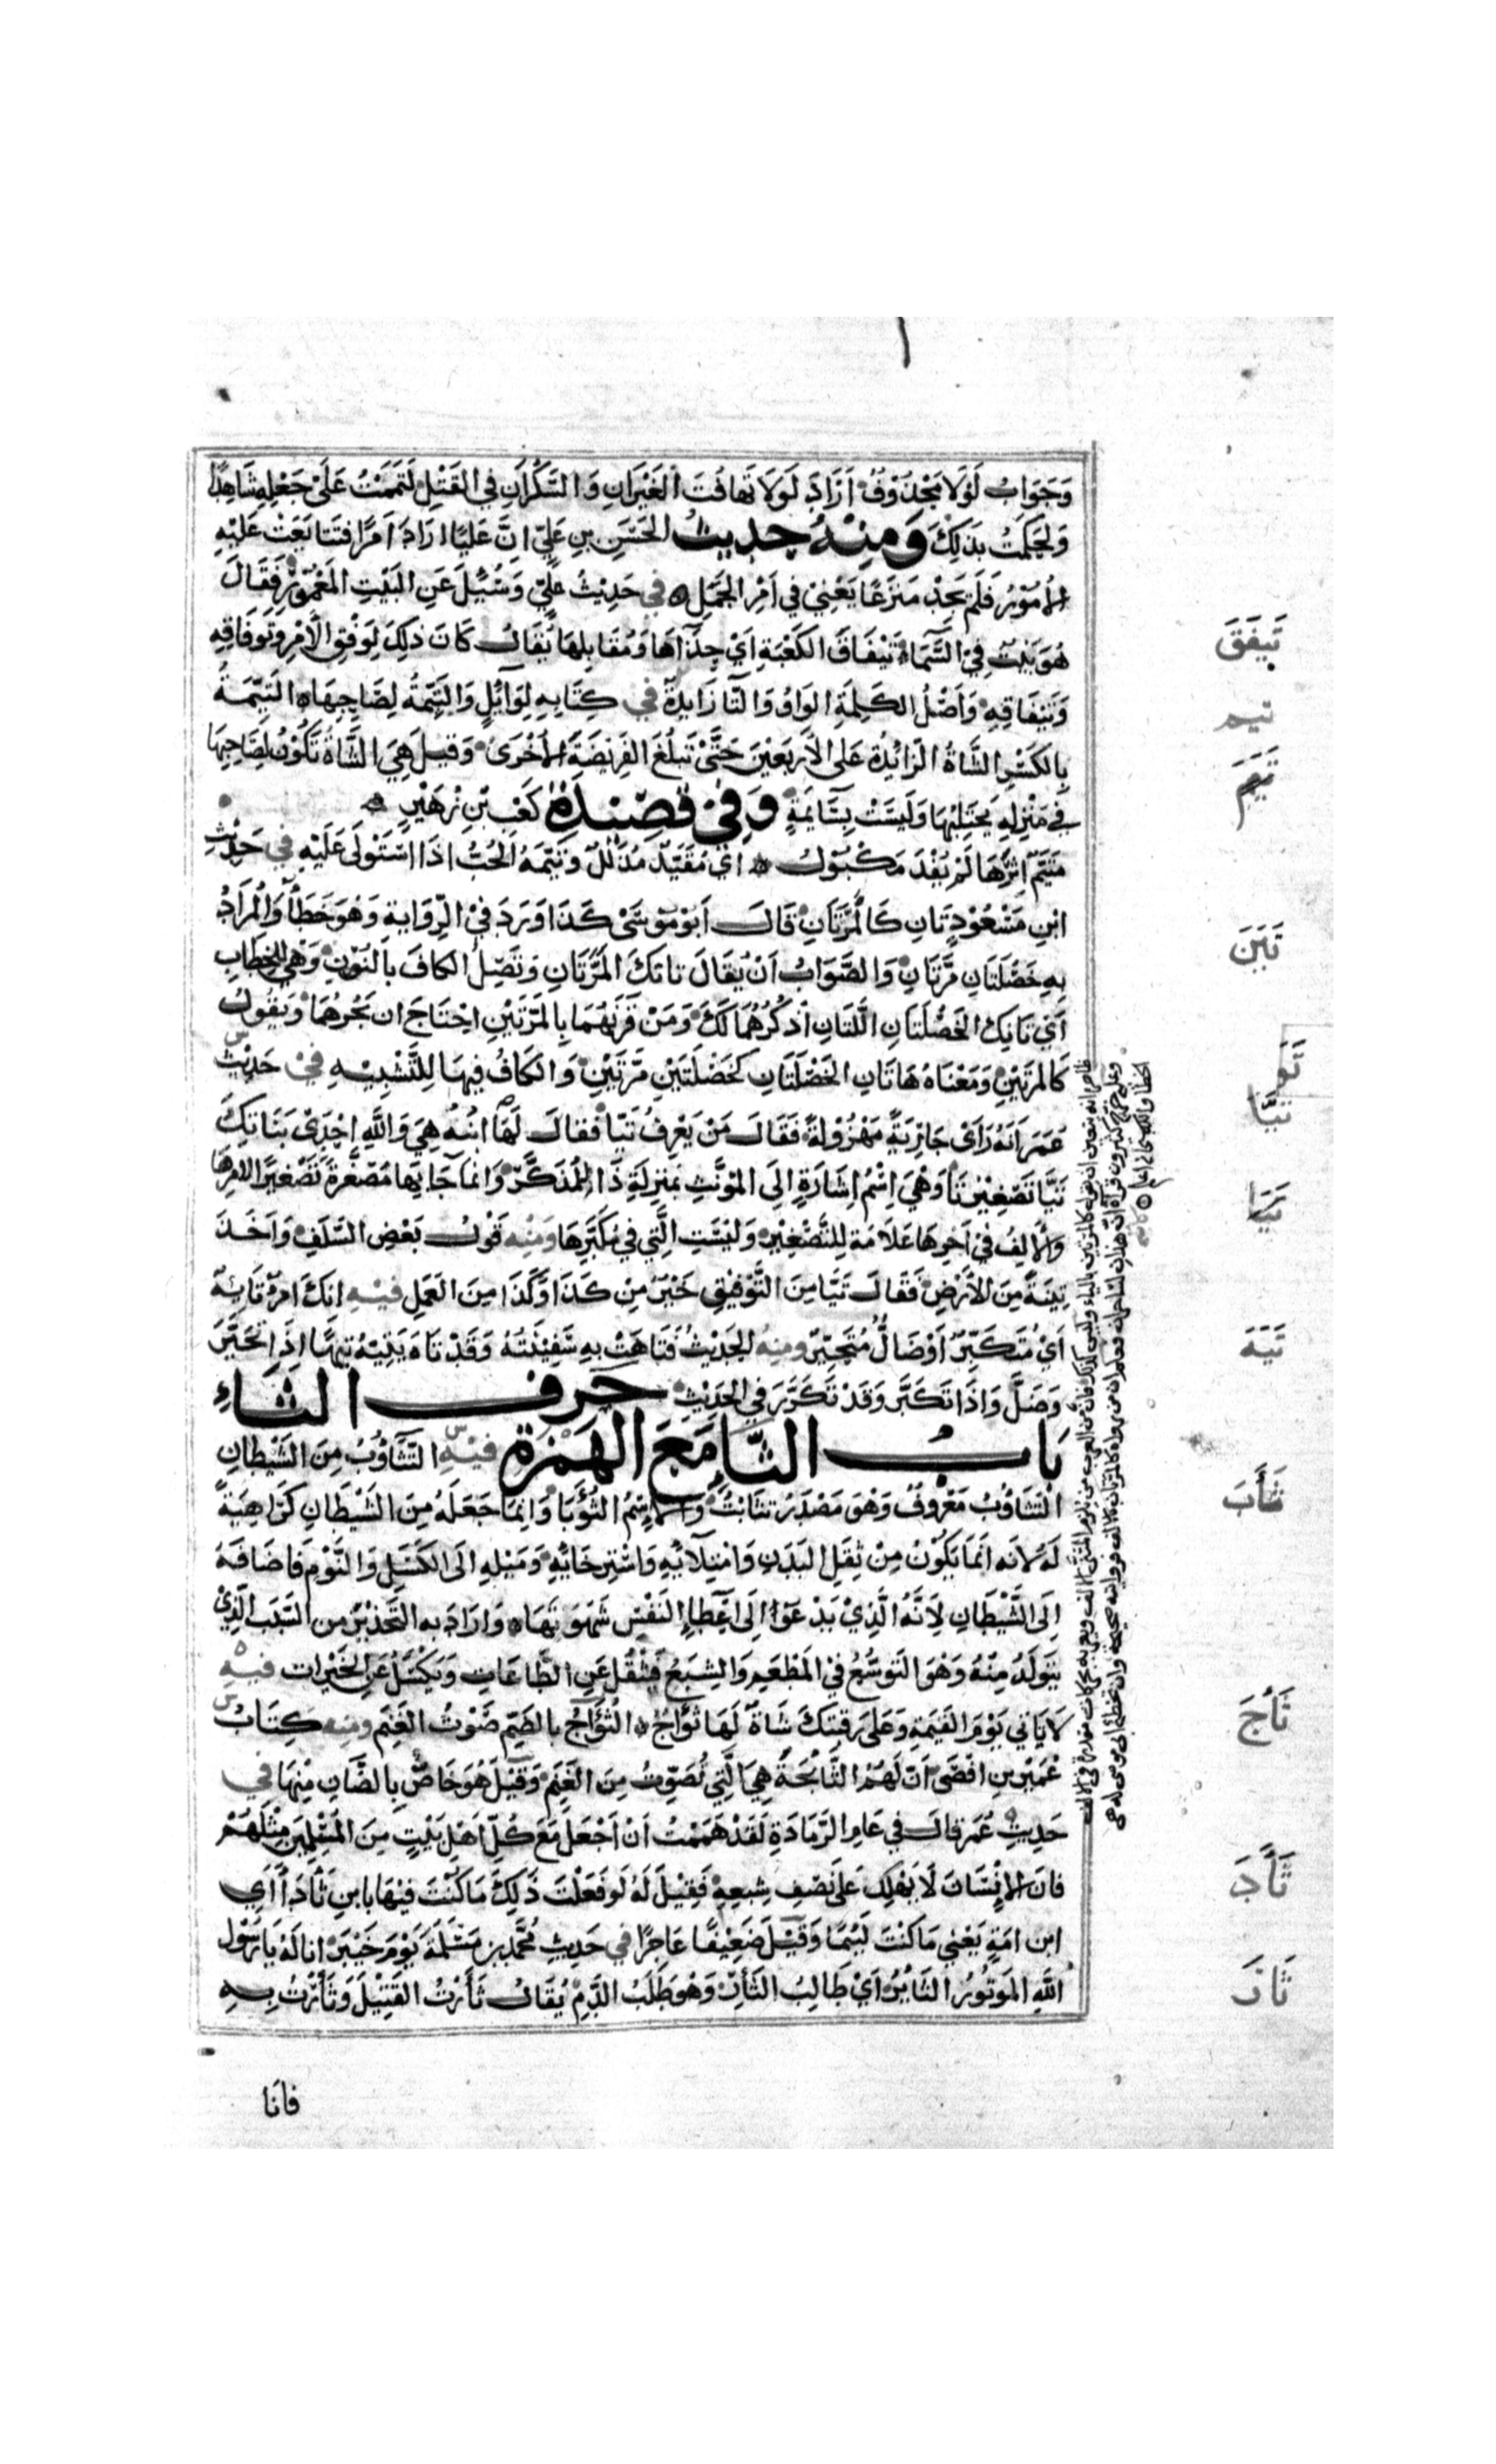 وَجَوَابُ لَوْلَا مَحْذُوْفٌ اَرَادَ لَوْلَا تَهَافُتُ الْغَيْرَانِ وَالسَّكْرَانِ فِي القَتْلِ لَتَمَّمْتُ عَلَى جَعْلِهِ شَاهِدًا
وَلَحَكَمْتُ بِذَلِكَ وَمِنْهُ حَدِيثُ الحَسَنِ بنِ عَلِيّ اِنَّ عَلِيًّا ارَادَ اَمْرًا فَتَتَايَعَتْ عَلَيْهِ
الاُمُوْرُ فَلَم يَجِدْ مَنْزَعًا يَعْنِيْ فِي اَمْرِ الجَمَلِ فِي حَدِيْثُ عَلِيّ وَسُئِلَ عَنِ البَيْتِ المَعْمُوْرِ فَقَالَ
هُوَ بَيْتٌ فِيْ السَّمَاءِ تَيْفَاقَ الكَعْبَةِ اَيْ حِذَآءَهَا وَمُقَابِلهَا يُقَالُ كَانَ ذٰلِكَ لِوَفْقِ الْاَمْرِ وَتَوْفَاقِهِ
وَتَيْفَاقِهِ وَاَصْلُ الكَلِمَةِ الوَاوُ وَالتَّا زَايِدَةٌ فِي كِتَابِهِ لِوَآئِلٍ وَالتِّيْمَةُ لِصَاحِبِهَا التِّيْمَةُ
بِالكَسْرِ الشَّاةُ الزَائِدَةُ عَلَى الاَرْبَعِيْنَ حَتَّى تَبْلُغَ الفَرِيْضَةَ الاُخْرَى وَقِيْلَ هِيَ الشَّاةُ تَكُوْنُ لِصَاحِبِهَا
فِي مَنْزِلِهِ يَحْتَلِبُهَا وَلَيْسَتْ بِسَآئِمَةٍ وَفِيْ قَصِيْدَةِ كَعْبِ بْنِ زُهَيْرٍ
مُتَيَّمٌ اِثْرَهَا لَمْ يُفْدَ مَكْبُوْلُ اَيْ مُعَبَّدٌ مُذَلَّلٌ وَتَيَّمَهُ الْحُبُّ اِذَا اسْتَوْلَى عَلَيْهِ فِي حَدِيْثِ
ابْنِ مَسْعُوْدٍ تَانِ كَالْمَرَّتَانِ قَالَ اَبُوْ مُوْسَى كَذَا وَرَدَ فِيْ الرِّوَايَةِ وَهُوَ خَطَأٌ وَالْمُرَادُ
بِهِ خَصْلَتَانِ مَرَّتَانِ وَالصَّوَابُ اَنْ يُقَالَ تَانِكَ المَرَّتَانِ وَتَصِلُ الكَافَ بِالنُّوْنِ وَهِيَ لِلْخِطَابِ
اَيْ تَانِكَ الخَصْلَتَانِ اللَّتَانِ اَذْكُرُهُمَا لَكَ وَمَنْ قَرَنَهُمَا بِالمَرَّتَيْنِ احْتَاجَ ان يَجُرَّهُمَا وَيَقُوْلُ
كَالمَرَّتَيْنِ وَمَعْنَاهُ هَاتَانِ الخَصْلَتَانِ كَخَصْلَتَيْنِ مَرَّتَيْنِ وَالكَافُ فِيهَا لِلتَّشْبِيْهِ فِيْ حَدِيْثِ
عُمَرَ اَنَّهُ رَاَى جَارِيَةً مَهْزُوْلَةً فَقَالَ مَنْ يَعْرِفُ تَيَّا فَقَالَ لَهُ ابْنُهُ هِيَ وَاللّٰهِ اِحْدَى بَنَاتِكَ
تَيَّا تَصْغِيْرُ تَا وَهِيَ اِسْمُ اِشَارَةٍ اِلَى المُؤَنَّثِ بِمَنْزِلَةِ ذَا لِلْمُذَكَّرِ وَانَّمَا جَا بِهَا مُصَغَّرَةً تَصْغِيْرًا لِاَمْرِهَا
وَالاَلِفُ فِيْ اٰخِرِهَا عَلَامَةٌ لِلتَّصْغِيْرِ وَلَيْسَتِ الَّتِي فِي مُكَبَّرِهَا وَمِنْهُ قَوْلُ بَعْضِ السَّلَفِ وَاَخَذَ
تِبْنَةً مِنَ الْاَرْضِ فَقَالَ تَيَّا مِنَ التَّوْفِيْقِ خَيْرٌ مِنْ كَذَا وَّكَذَا مِنَ العَمَلِ فِيْهِ اِنَّكَ امْرُؤٌ تَائِهٌ
اَيْ مُتَكَبِّرٌ اَوْ ضَالٌّ مُتَحَيِّرٌ وَمِنْهُ الحَدِيْثُ فَتَاهَتْ بِهِ سَفِيْنَتُهُ وَقَدْ تَاهَ يَتِيْهُ تِيْهًا اِذَا تَحَيَّرَ
وَضَلَّ وَاِذَا تَكَبَّرَ وَقَدْ تَكَرَّرَ فِي الحَدِيْثِ حَرف الثَاءِ
بَابُ الثَّا مَعَ الهَمزَةِ فِيْهِ التَّثَاؤُبُ مِنَ الشَّيْطَانِ
التَثَاؤُبُ مَعْرُوفٌ وَهُوَ مَصْدَرُ تَثَابْتُ وَالاِسْمُ الثُّؤَبَا وَاِنَّمَا جَعَلَهُ مِنَ الشَّيْطَانِ كَرَاهِيَةً
لَهُ لِاَنَّه اِنَّمَا يَكُوْنُ مِنْ ثِقَلِ البَدَنِ وَامْتِلَآئِهِ وَاسْتِرْخَائِهِ وَمَيْلِهِ اِلَى الكَسَلِ وَالنَّوْمِ فَاَضَافَهُ
اِلَى الشَّيْطَانِ لِاَنَّهُ الَّذِيْ يَدْعُوْا اِلَى اِعْطَاءِ النَّفْسِ شَهْوَتَهَا وَاَرَادَ بِهِ التَّحْذِيْرَ مِنَ السَّبَبِ الَّذِيْ
يَتَوَلَّدُ مِنْهُ وَهُوَ التَوَسُّعُ فِيْ المَطْعَمِ وَالشِّبَعُ فَيَثْقُلُ عَنِ الطَّاعَاتِ وَيَكْسَلُ عَنِ الخَيْرَاتِ فِيْهِ
لَا يَاْتِي يَوْمَ القِيٰمَةِ وَعَلَى رَقَبَتِكَ شَاةٌ لَهَا ثُؤَاجٌ الثُؤَاجُ بِالضَّمِّ صَوْتُ الغَنَمِ وَمِنْهُ كِتَابُ
عُمَيْرِ بنِ اَفْصَى اَنَّ لَهُمُ الثَّائِجَةَ هِيَ الَّتِيْ تُصَوِّتُ مِنَ الغَنَمِ وَقِيْلَ هُوَ خَاصٌّ بِالضَّأنِ مِنْهَا فِي
حَدِيْثِ عُمَرَ قَالَ فِي عَامِ الرَّمَادَةِ لَقَدْ هَمَمْتُ اَنْ اَجْعَلَ مَعَ كُلِّ اَهْلِ بَيْتٍ مِنَ المُسْلِمِيْنَ مِثْلَهُمْ
فَاِنَّ الاِنْسَانَ لَا يَهْلِكُ عَلَى نِصْفِ شِبَعِهِ فَقِيْلَ لَهُ لَوْ فَعَلْتَ ذٰلِكَ مَا كُنْتَ فِيْهَا بِابنِ ثَأْدَاءَ اَيِ
ابن اَمَةٍ يَعْنِي مَا كُنْتَ لَئِيْمًا وَقِيْلَ ضَعِيْفًا عَاجِزًا فِي حَدِيْثِ مُحَمَّدِ بنِ مَسْلَمَةَ يَوْمَ خَيْبَرَ انَا لَهُ يَا رَسُوْلَ
اللّٰهِ المَوْتُوْرُ الثَائِرُ اَيْ طَالِبُ الثَأْرِ وَهُوَ طَلَبُ الدَّمِ يُقَالُ ثَأَرْتُ القَتِيْلَ وَثَأَرْتُ بِهِ
فَانَا
تَيفَقَ
تيم
تَيَمَ
تَيَنَ
تَيَّا
تَيَهَ
ثَأَبَ
ثَأَجَ
ثَأَدَ
ثَأَرَ